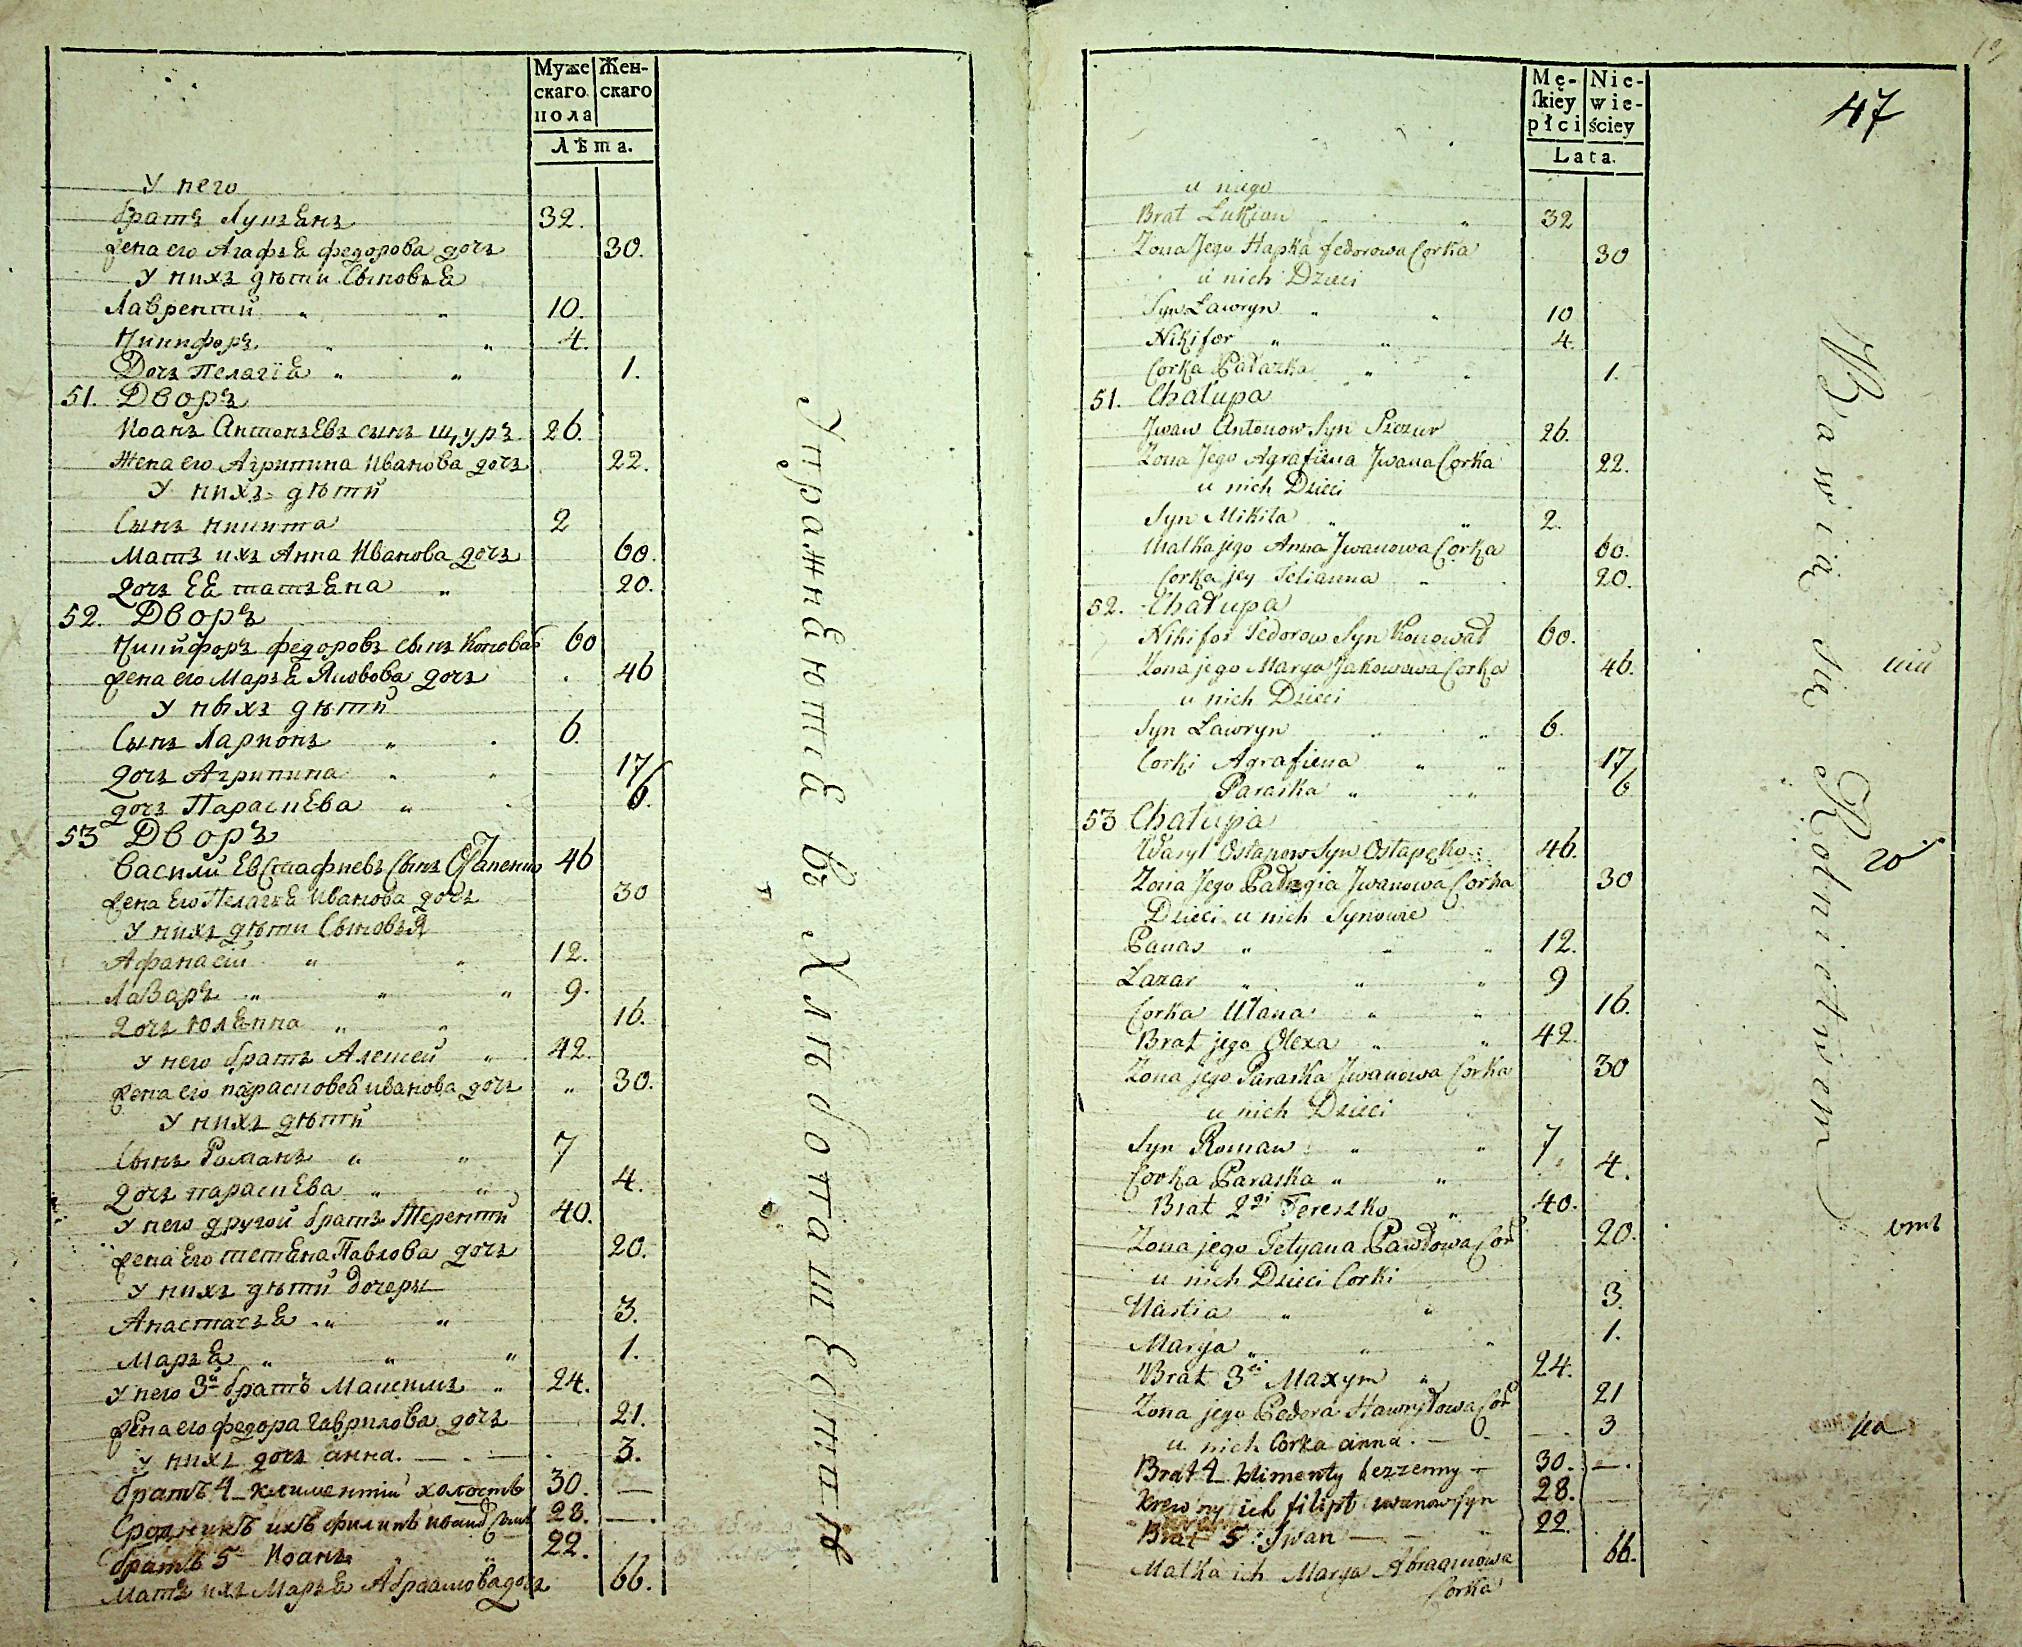 Муже
скаго
пола
Жен-
скаго
Лѣта.
У него
братъ Лукьянъ 32.
жена его Агафья федорова дочь 30.
У нихъ дѣти Сыновья
Лаврентий " " 10.
Никифоръ " " 4.
Дочь Пелагія " " 1.
51. Дворъ
Иоанъ Антоньевъ сынъ щуръ 26.
Жена его Агрипина Иванова дочь 22.
У нихъ дѣтй
Сынъ никита 2
Мать ихъ Анна Иванова дочь 60.
дочь ея татьяна " 20.
52. Дворъ
Никифоръ федоровъ сынъ Коновал 60
жена его Марья Яковова дочь 46
У ныхъ дѣтй
Сынъ Ларионъ " 6.
дочь Агрипина " " 17
дочь Параскева " 6.
53 Дворъ
Василий Евстафиевъ Сынъ Остапенко 46
жена Его Пелагея Иванова дочь 30
У нихъ дѣти Сыновья
Афанасий " " 12.
Лазаръ " " " 9.
дочь юлянна " " 16.
у него братъ Алексей " 42.
жена его парасковея иванова дочь " 30.
У нихъ дѣтй
Сынъ Романъ " " 7
дочь параскева " " 4.
у него другой братъ Терентий 40.
жена Его тетяна Павлова дочь 20.
у нихъ дѣти дочеры
Анастасья " " 3.
Марья " " " 1.
у него 3й братъ Максимъ " 24.
жена его федора Гаврилова дочь 21.
у нихъ дочь анна. 3.
братъ 4 климентий холостъ 30. —
Сродникъ ихъ филипъ иванов Сынъ 28. —.
братъ 5 Иоанъ 22.
Мать ихъ Марья Абраамова дочь 66.
Упражняются въ Хлѣбопашестве
47
Mę-
skiey
płci
Nie-
wie-
ściey
Lata.
u niego
Brat Łukian " " 32
Zona Jego Hapka fedorowa Corka 30
u nich Dzieci
Syn Ławryn " " 10
Nikifor " " 4.
Corka Pałazka " " 1.
51. Chałupa
Jwan Antonow Syn Szczur 26.
Zona Jego Agrafiena Jwana Corka 22.
u nich Dzieci
Syn Mikita " " 2.
Matka jego Anna Jwanowa Corka 60.
Corka jey Tetianna " 20.
52. Chałupa
Nikifor Fedorow Syn Konował 60.
Zona jego Marya Jakowowa Corka 46.
u nich Dzieci
Syn Ławryn " " 6.
Corki Agrafiena " " 17
Paraska " " 6
53 Chałupa
Wasyl Ostapow Syn Ostapęko 46.
Zona Jego Pałagia Jwanowa Corka 30
Dzieci u nich Synowie
Panas " " " 12.
Łazar " " " 9
Corka Ulana " " 16.
Brat jego Olexa " " 42.
Zona jego Paraska Jwanowa Corka 30
u nich Dzieci
Syn Roman " " 7.
Corka Paraska " " 4.
Brat 2gi Tereszko " 40.
Zona jego Tetyana Pawłowa Cor 20.
u nich Dzieci Corki
Nastia " " 3.
Marya " " " 1.
Brat 3ci Maxym " 24.
Zona jego Fedora Hawryłowa Cor 21
u nich Corka anna. — 3
Brat 4 klimenty bezzenny — 30. —.
krewny ich filipt iwanow syn 28.
Brat 5: Iwan — 22.
Matka ich Marya Abramowa 66.
Corka
Bawią się Rolnictwem
20